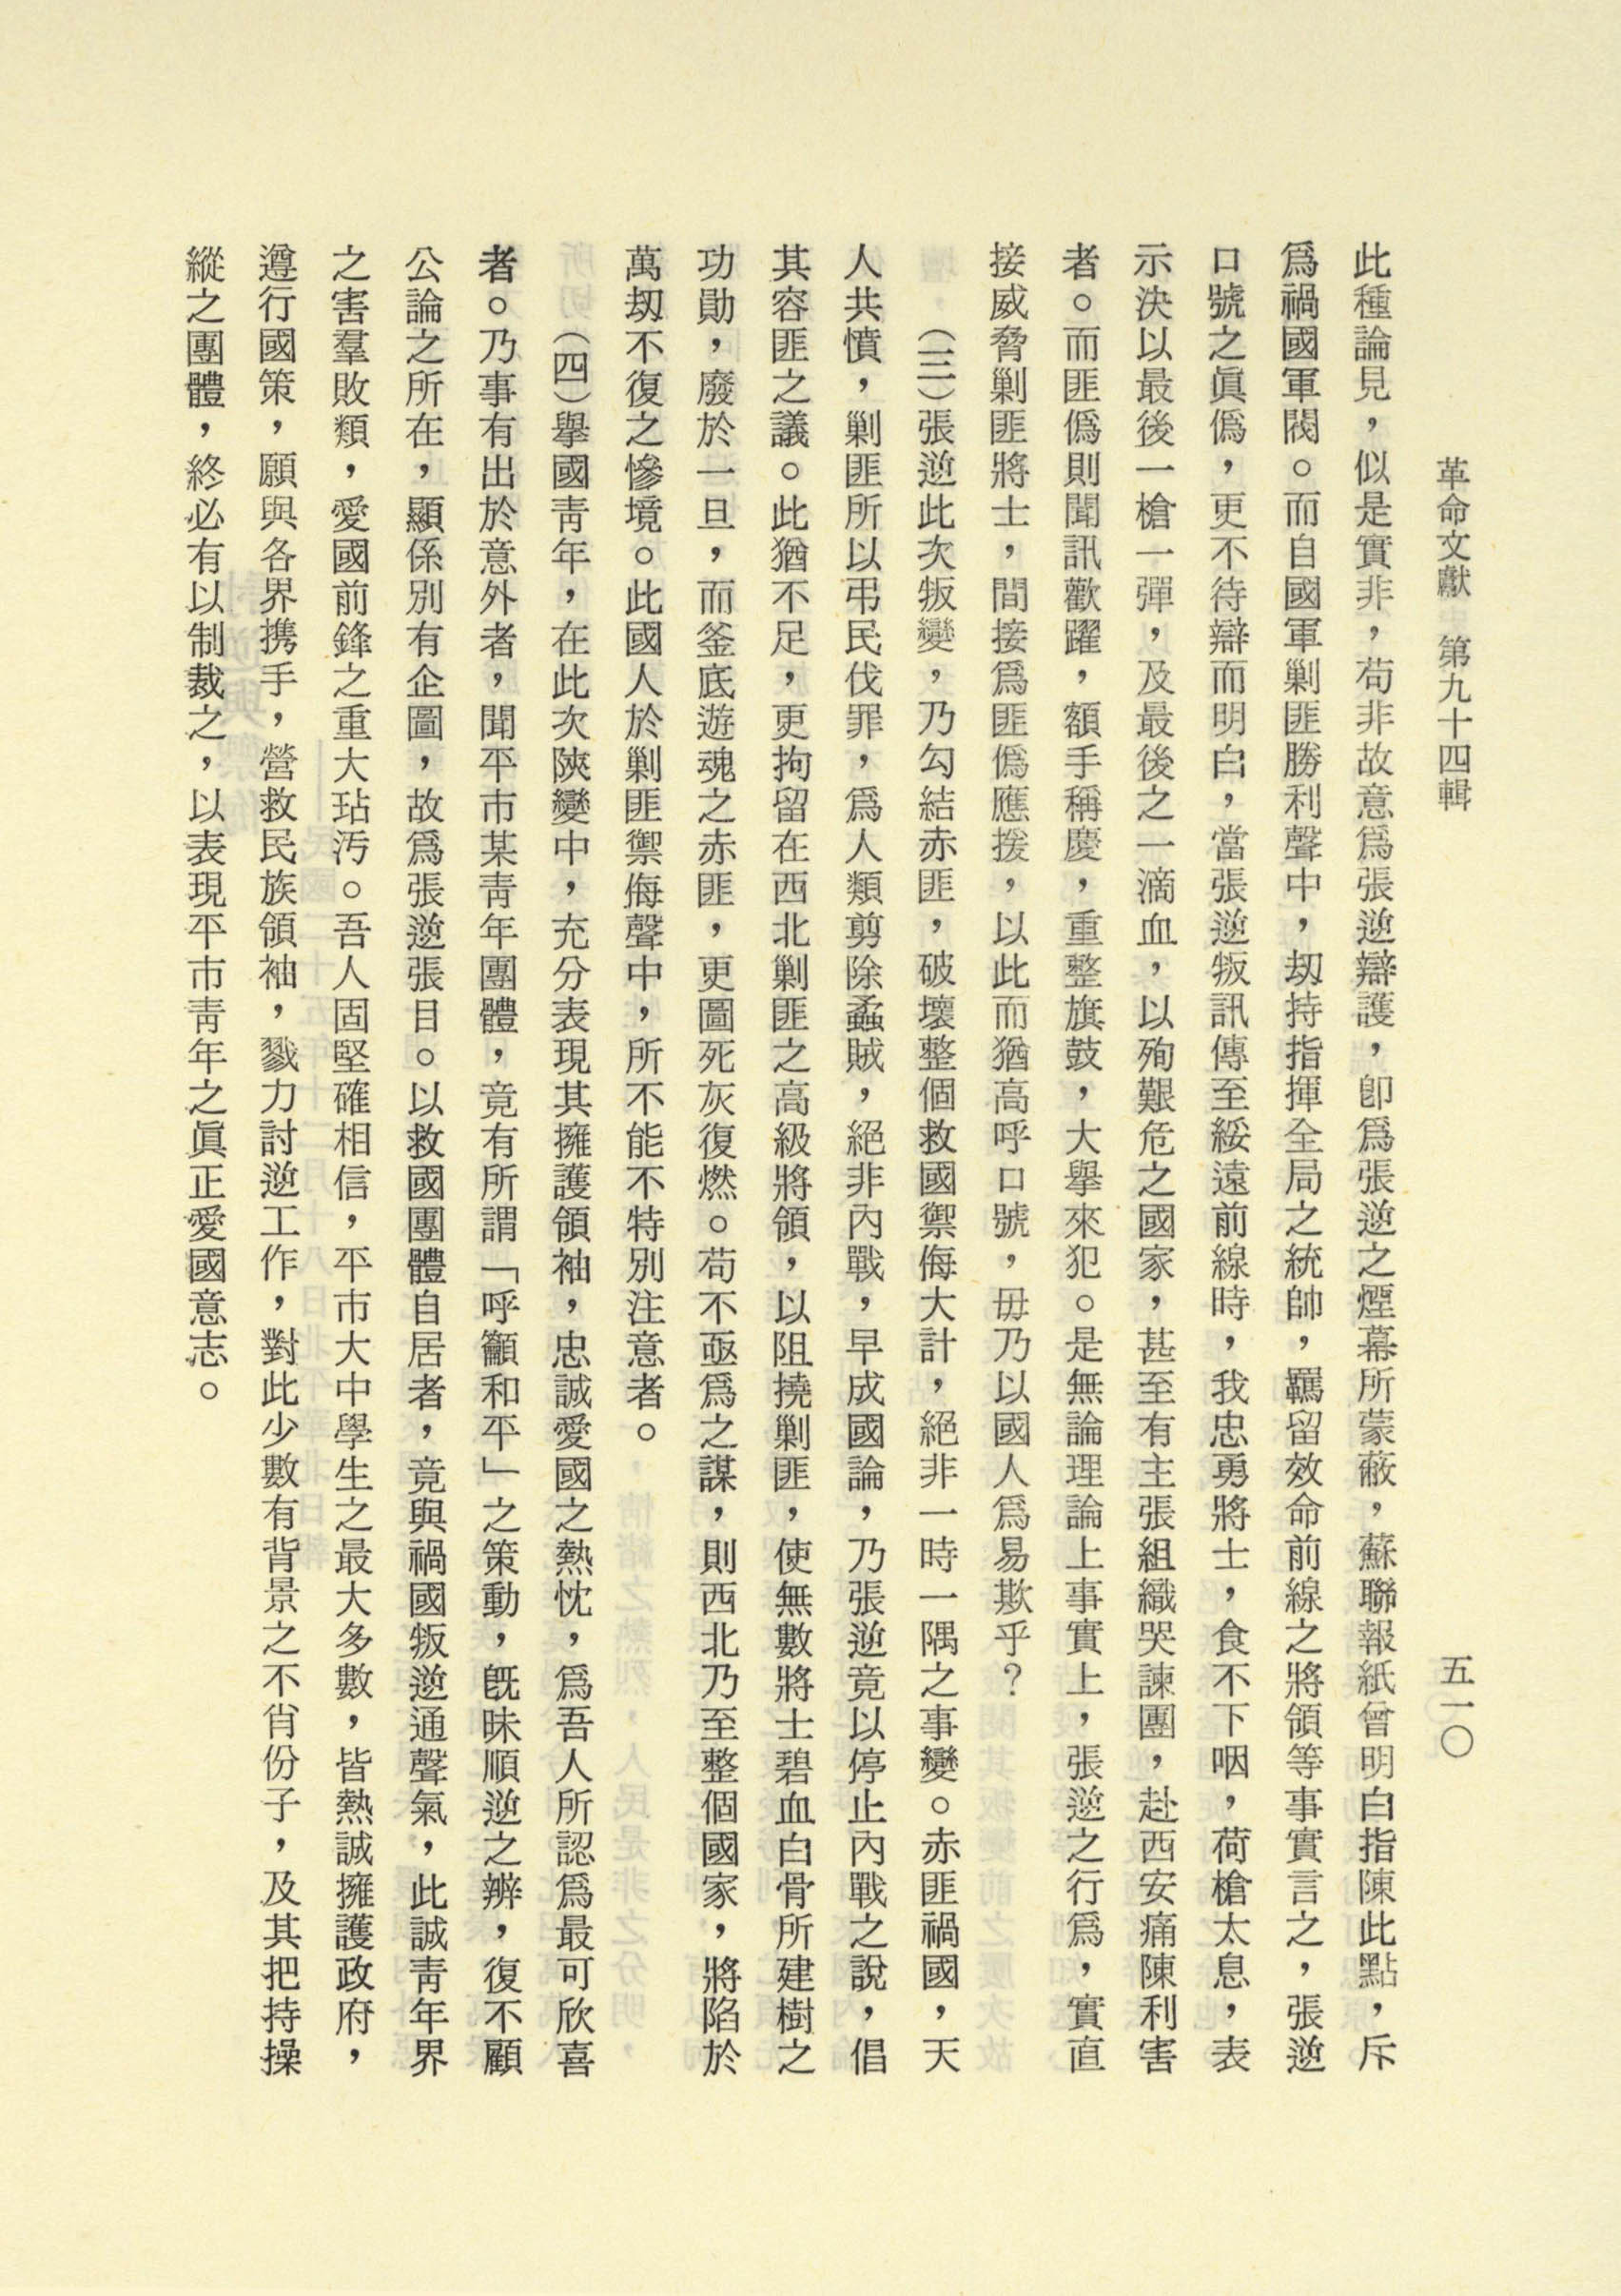 革命文獻　第九十四輯　五一〇
此種論見，似是實非，苟非故意爲張逆辯護，卽爲張逆之煙幕所蒙蔽，蘇聯報紙曾明白指陳此點，斥
爲禍國軍閥。而自國軍剿匪勝利聲中，刼持指揮全局之統帥，羈留效命前線之將領等事實言之，張逆
口號之眞僞，更不待辯而明白，當張逆叛訊傳至綏遠前線時，我忠勇將士，食不下咽，荷槍太息，表
示決以最後一槍一彈，及最後之一滴血，以殉艱危之國家，甚至有主張組織哭諫團，赴西安痛陳利害
者。而匪僞則聞訊歡躍，額手稱慶，重整旗鼓，大舉來犯。是無論理論上事實上，張逆之行爲，實直
接威脅剿匪將士，間接爲匪僞應援，以此而猶高呼口號，毋乃以國人爲易欺乎？
（三）張逆此次叛變，乃勾結赤匪，破壞整個救國禦侮大計，絕非一時一隅之事變。赤匪禍國，天
人共憤，剿匪所以弔民伐罪，爲人類剪除蟊賊，絕非內戰，早成國論，乃張逆竟以停止內戰之說，倡
其容匪之議。此猶不足，更拘留在西北剿匪之高級將領，以阻撓剿匪，使無數將士碧血白骨所建樹之
功勛，廢於一旦，而釜底遊魂之赤匪，更圖死灰復燃。苟不亟爲之謀，則西北乃至整個國家，將陷於
萬刼不復之慘境。此國人於剿匪禦侮聲中，所不能不特別注意者。
（四）舉國靑年，在此次陝變中，充分表現其擁護領袖，忠誠愛國之熱忱，爲吾人所認爲最可欣喜
者。乃事有出於意外者，聞平市某靑年團體，竟有所謂「呼籲和平」之策動，旣昧順逆之辨，復不顧
公論之所在，顯係別有企圖，故爲張逆張目。以救國團體自居者，竟與禍國叛逆通聲氣，此誠靑年界
之害羣敗類，愛國前鋒之重大玷汚。吾人固堅確相信，平市大中學生之最大多數，皆熱誠擁護政府，
遵行國策，願與各界携手，營救民族領袖，戮力討逆工作，對此少數有背景之不肖份子，及其把持操
縱之團體，終必有以制裁之，以表現平市靑年之眞正愛國意志。